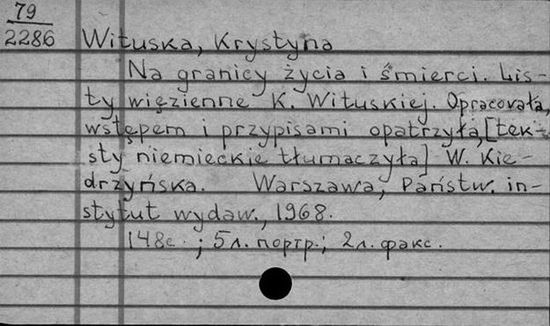 79
2286
Wituska, Krystyna
Na granicy życia i śmierci. Lis-
ty więzienne K. Wituskiej. Opracowała,
wstępem i przypisami opatrzyła, [tek-
sty niemieckie tłumaczyła] W. Kie-
drzyńska. Warszawa, Państw. in-
stytut wydaw., 1968.
148с. ; 5л. портр.; 2л. факс.